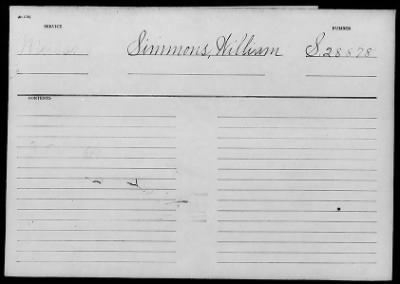 SERVICE
NUMBER
Simmons, William
S. 28878
CONTENTS